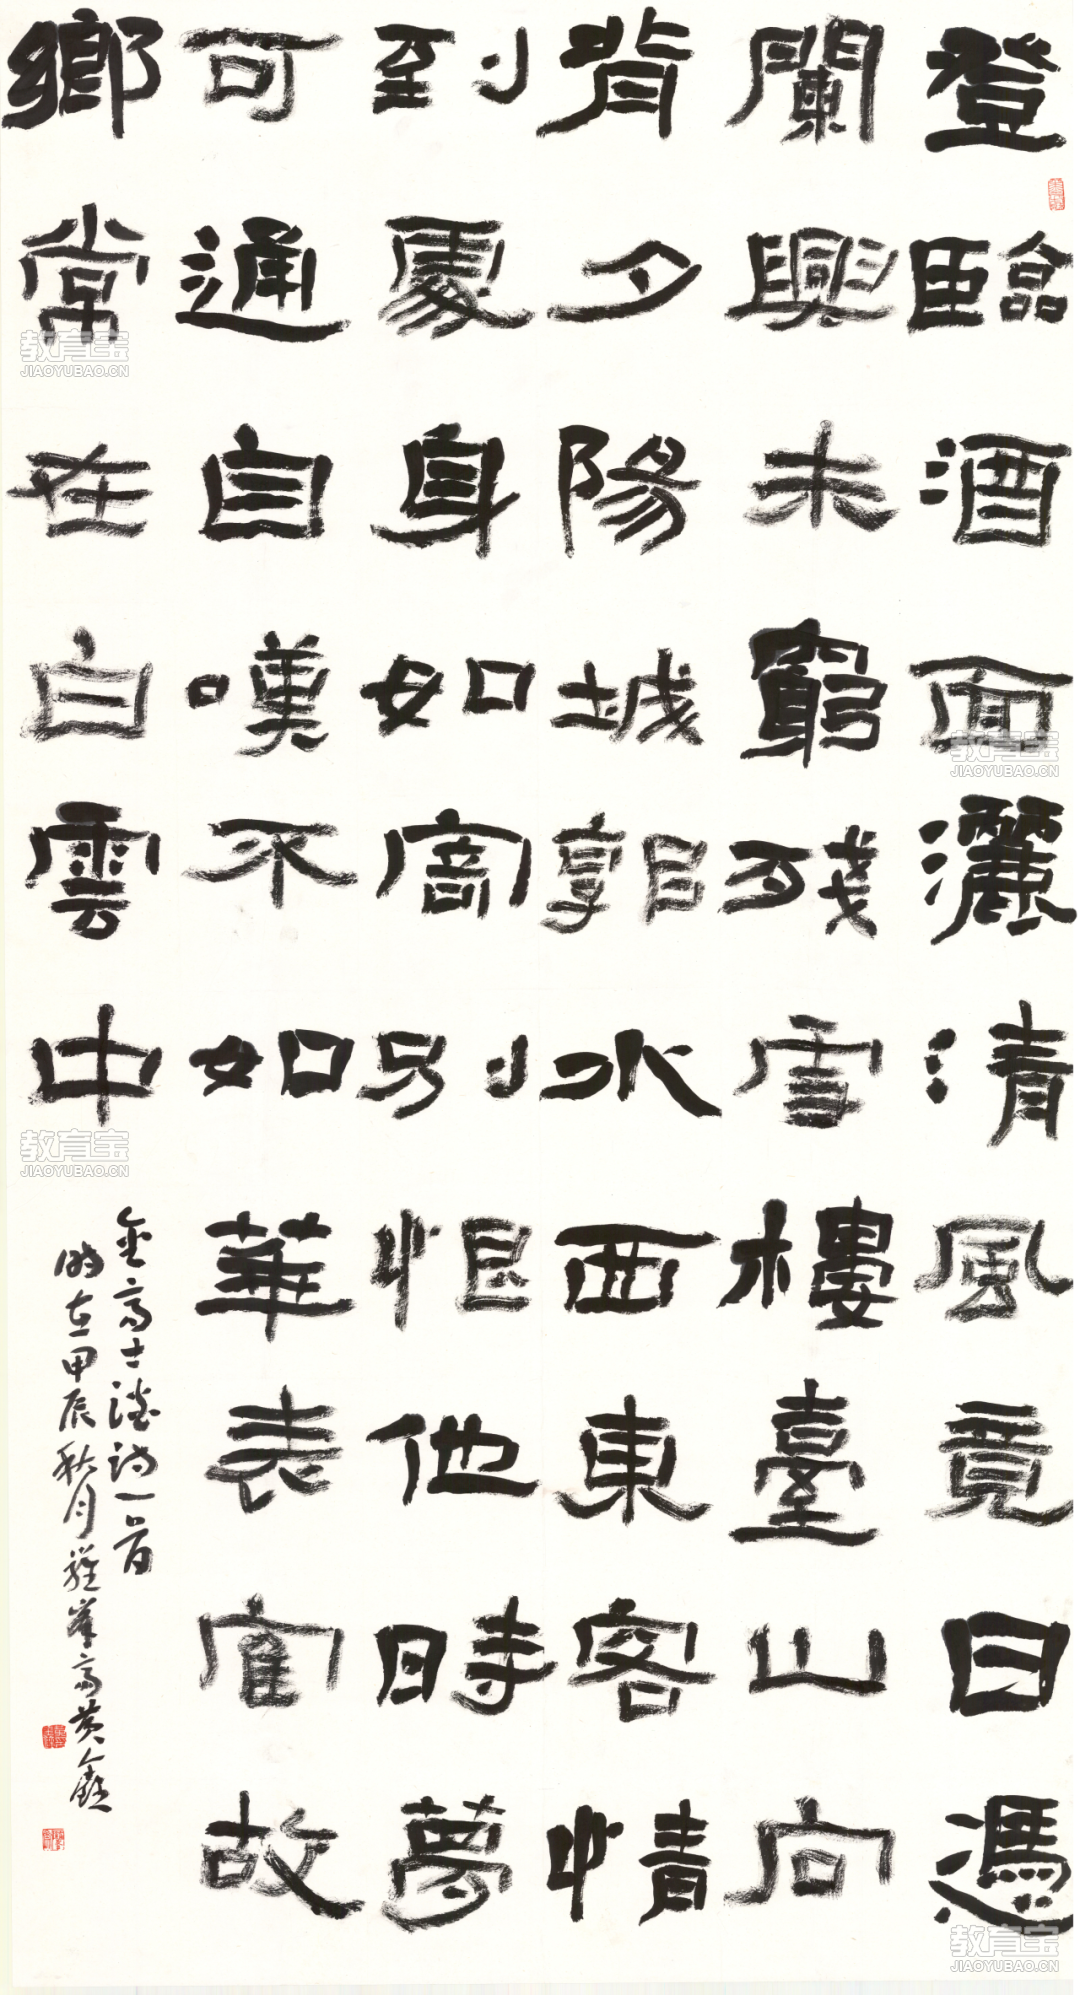 登臨酒面灑清風竟日憑
闌興未窮殘雪樓臺山向
背夕陽城郭水西東客情
到處身如寄別恨他時夢
可通自嘆不如華表寉故
鄉常在白雲中
金高士談詩一首
時在甲辰秋月峯高黃鑫
教育宝
JIAOYUBAO.CN
教育宝
JIAOYUBAO.CN
教育宝
JIAOYUBAO.CN
教育宝
JIAOYUBAO.CN